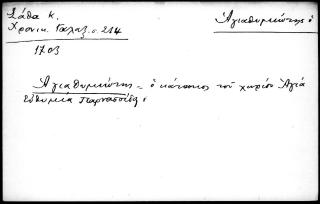 Σάθα Κ.
Χρονικ. Γαλαξ. σ. 214
Ἁγιαθυμιώτης ὁ
1703
Ἁγιαθυμιώτης = ὁ κάτοικος τοῦ χωρίου Ἁγιά
Εὐθυμιά Παρνασσίδος